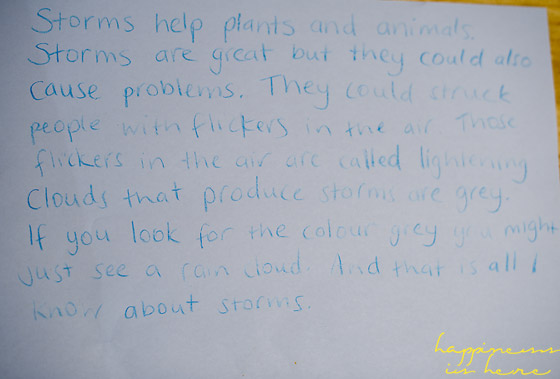 Storms help plants and animals.
Storms are great but they could also
cause problems. They could struck
people with flickers in the air. Those
flickers in the air are called lightening
Clouds that produce storms are grey.
If you look for the colour grey you might
just see a rain cloud. And that is all I
know about storms.
happiness
is here